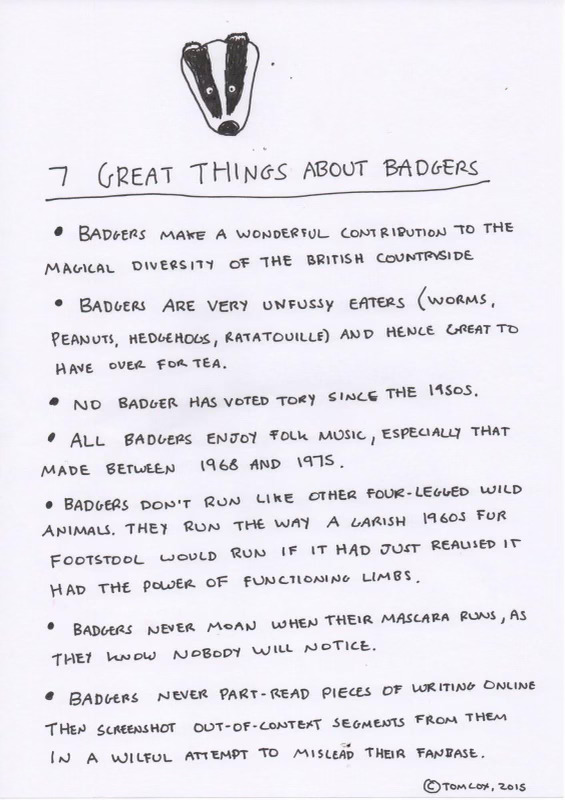 7 GREAT THINGS ABOUT BADGERS
• BADGERS MAKE A WONDERFUL CONTRIBUTION TO THE
MAGICAL DIVERSITY OF THE BRITISH COUNTRYSIDE
• BADGERS ARE VERY UNFUSSY EATERS (WORMS,
PEANUTS, HEDGEHOGS, RATATOUILLE) AND HENCE GREAT TO
HAVE OVER FOR TEA.
• NO BADGER HAS VOTED TORY SINCE THE 1950S.
• ALL BADGERS ENJOY FOLK MUSIC, ESPECIALLY THAT
MADE BETWEEN 1968 AND 1975.
• BADGERS DON'T RUN LIKE OTHER FOUR-LEGGED WILD
ANIMALS. THEY RUN THE WAY A GARISH 1960S FUR
FOOTSTOOL WOULD RUN IF IT HAD JUST REALISED IT
HAD THE POWER OF FUNCTIONING LIMBS.
• BADGERS NEVER MOAN WHEN THEIR MASCARA RUNS, AS
THEY KNOW NOBODY WILL NOTICE.
• BADGERS NEVER PART-READ PIECES OF WRITING ONLINE
THEN SCREENSHOT OUT-OF-CONTEXT SEGMENTS FROM THEM
IN A WILFUL ATTEMPT TO MISLEAD THEIR FANBASE.
© TOM COX, 2015